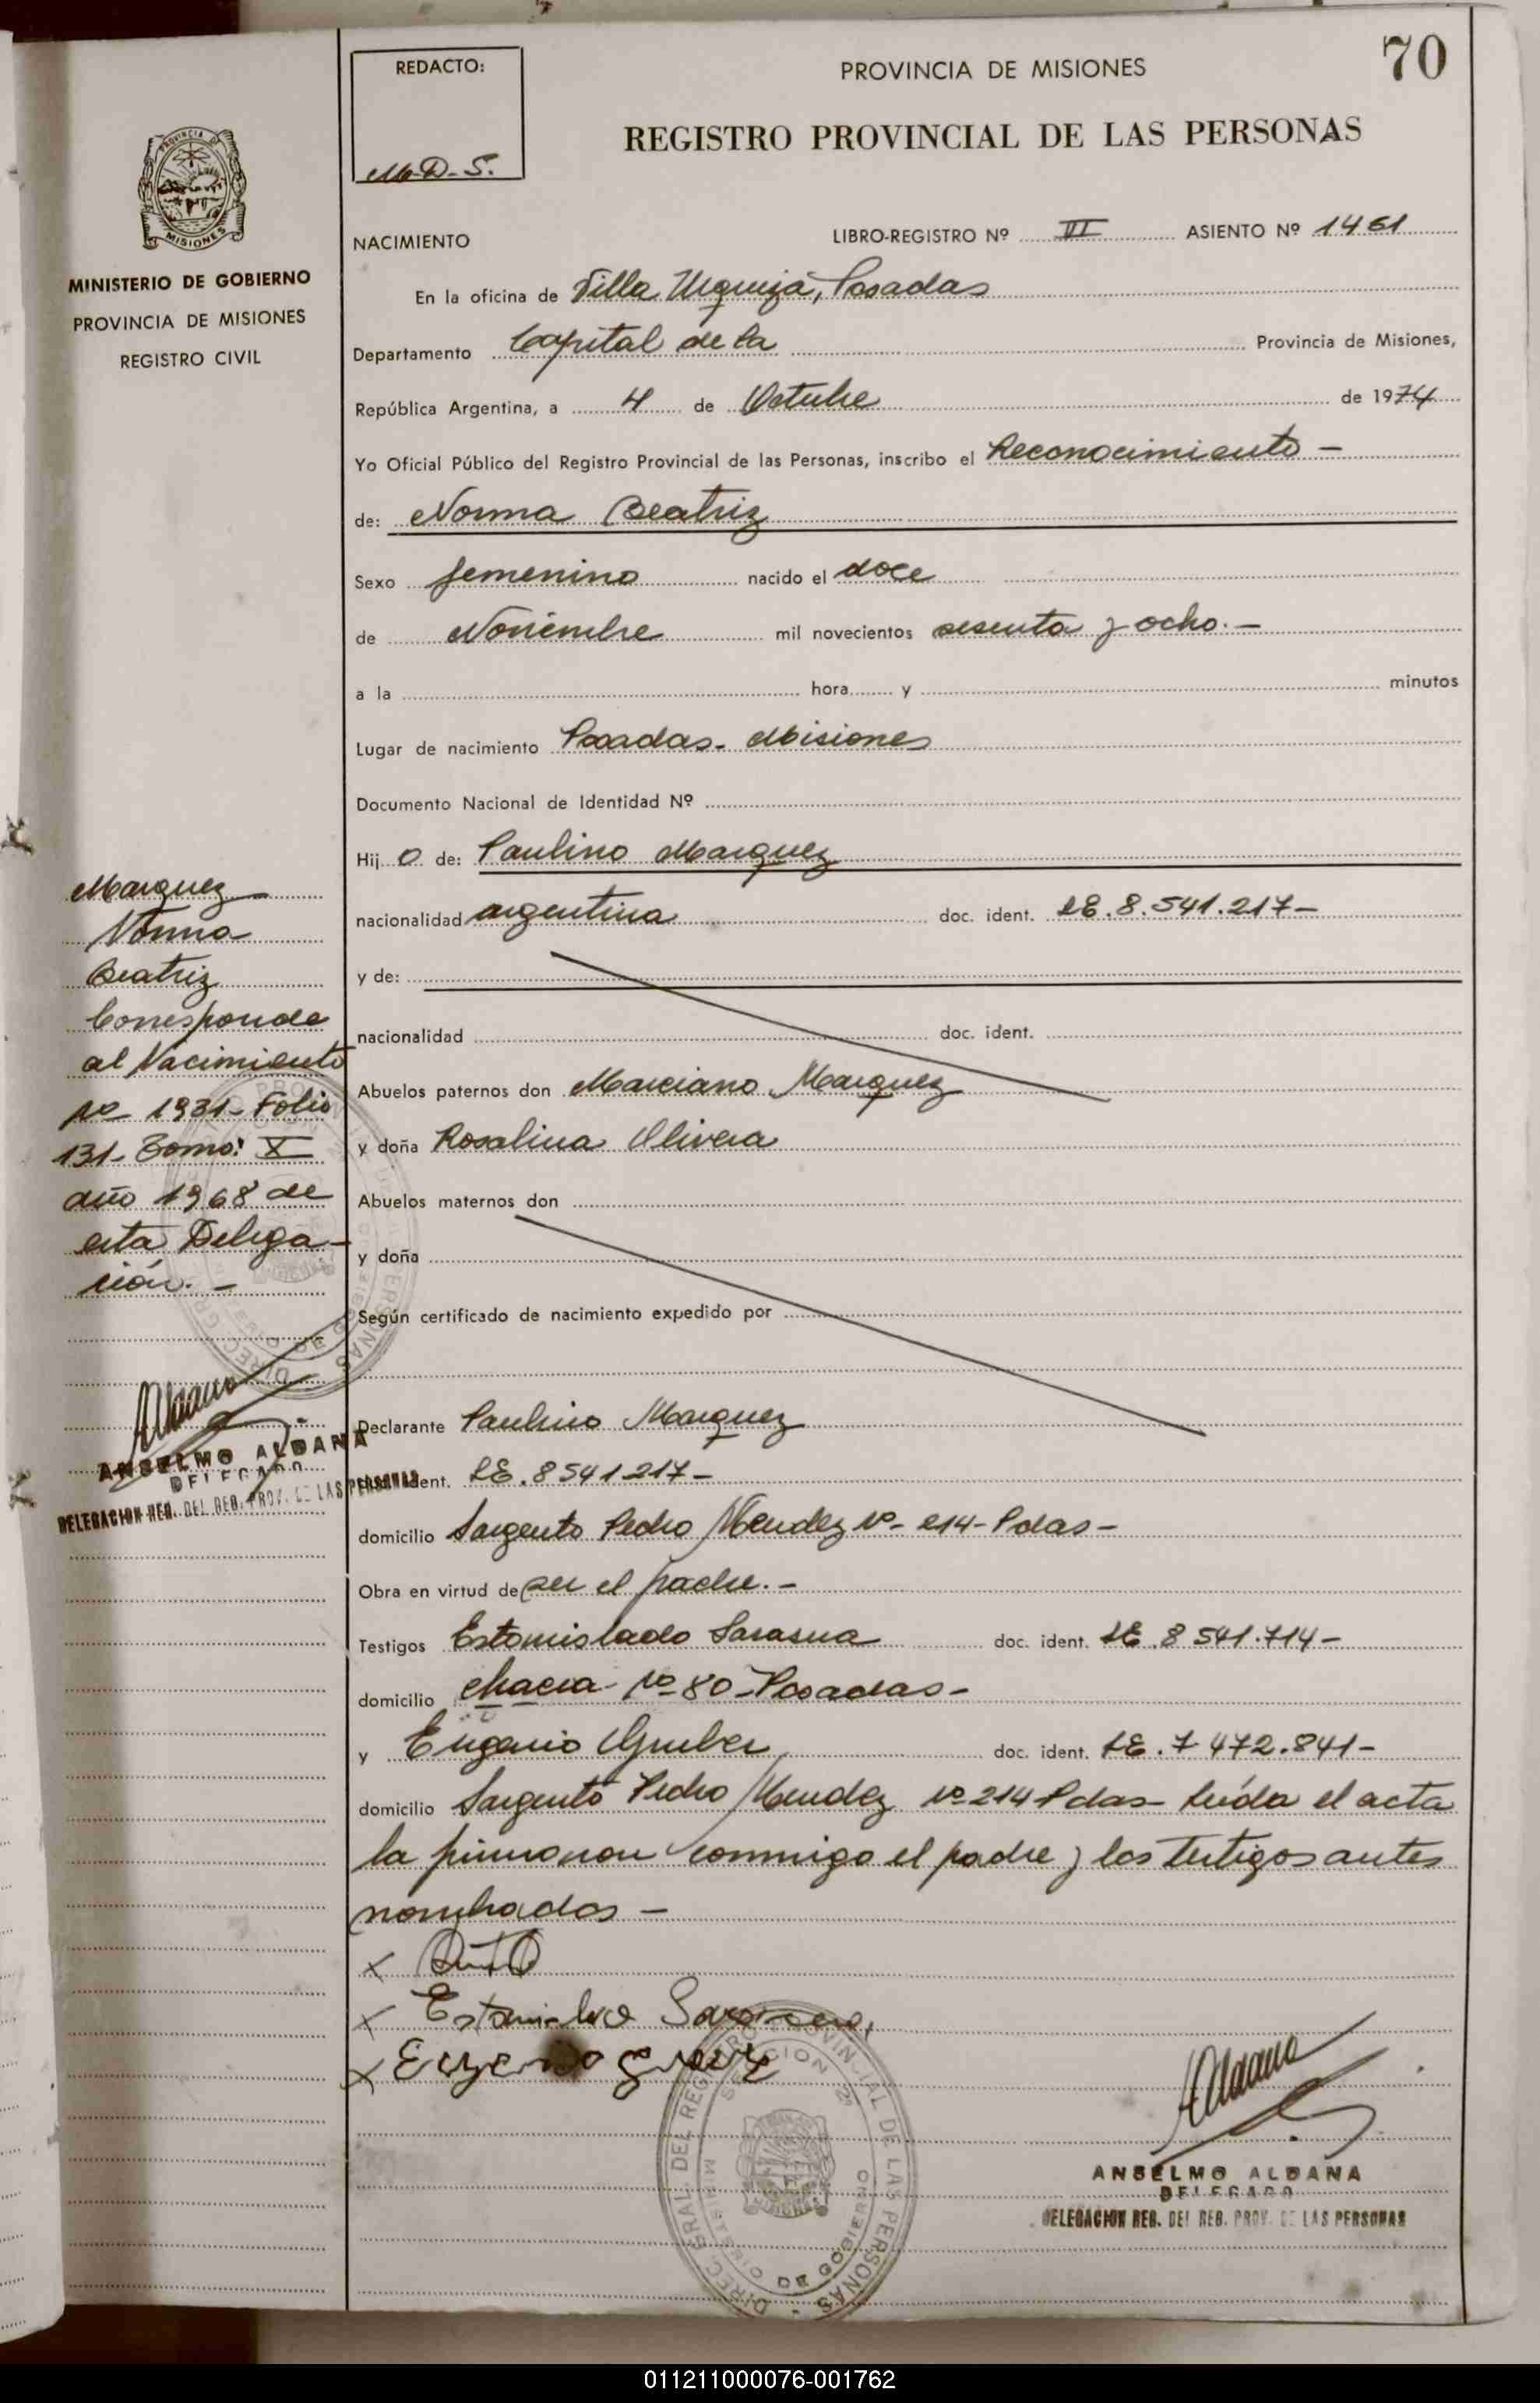 70
REDACTO:
M.D.S.
PROVINCIA DE MISIONES
REGISTRO PROVINCIAL DE LAS PERSONAS
PROVINCIA DE
MISIONES
MINISTERIO DE GOBIERNO
PROVINCIA DE MISIONES
REGISTRO CIVIL
NACIMIENTO
LIBRO-REGISTRO Nº VI ASIENTO Nº 1461
En la oficina de Villa Urquiza, Posadas
Departamento Capital de la Provincia de Misiones,
República Argentina, a 4 de Octubre de 1974
Yo Oficial Público del Registro Provincial de las Personas, inscribo el Reconocimiento -
de: Norma Beatriz
Sexo femenino nacido el doce
de Noviembre mil novecientos sesenta y ocho.-
a la hora y minutos
Lugar de nacimiento Posadas- Misiones
Documento Nacional de Identidad Nº
Hij o de: Paulino Marquez
nacionalidad argentina doc. ident. LE.8.541.217-
y de:
nacionalidad doc. ident.
Abuelos paternos don Marciano Marquez
y doña Rosalina Olivera
Abuelos maternos don
y doña
Según certificado de nacimiento expedido por
Declarante Paulino Marquez
ident. LE.8541217-
domicilio Sargento Pedro Mendez nº- 214- Pdas-
Obra en virtud de ser el padre.-
Testigos Estanislado Sarasua doc. ident. LE.8541.714-
domicilio chacra nº 80-Posadas-
y Eugenio Gruber doc. ident. LE.7472.841-
domicilio Sargento Pedro Mendez nº 214 Pdas- Leída el acta
la firmaron conmigo el padre y los testigos antes
nombrados -
Marquez
Norma
Beatriz
Corresponde
al Nacimiento
nº 1931- Folio
131- Tomo: X
año 1968 de
esta Delega-
ción.-
Aldana
ANSELMO ALDANA
DELEGADO
DELEGACION REG. DEL REG. PROV. DE LAS PERSONAS
x
x Estanislao Sarasua
x Eugenio
DIREC. GRAL. DEL REGISTRO PROVINCIAL DE LAS PERSONAS
MINISTERIO DE GOBIERNO
Aldana
ANSELMO ALDANA
DELEGADO
DELEGACION REG. DEL REG. PROV. DE LAS PERSONAS
011211000076-001762